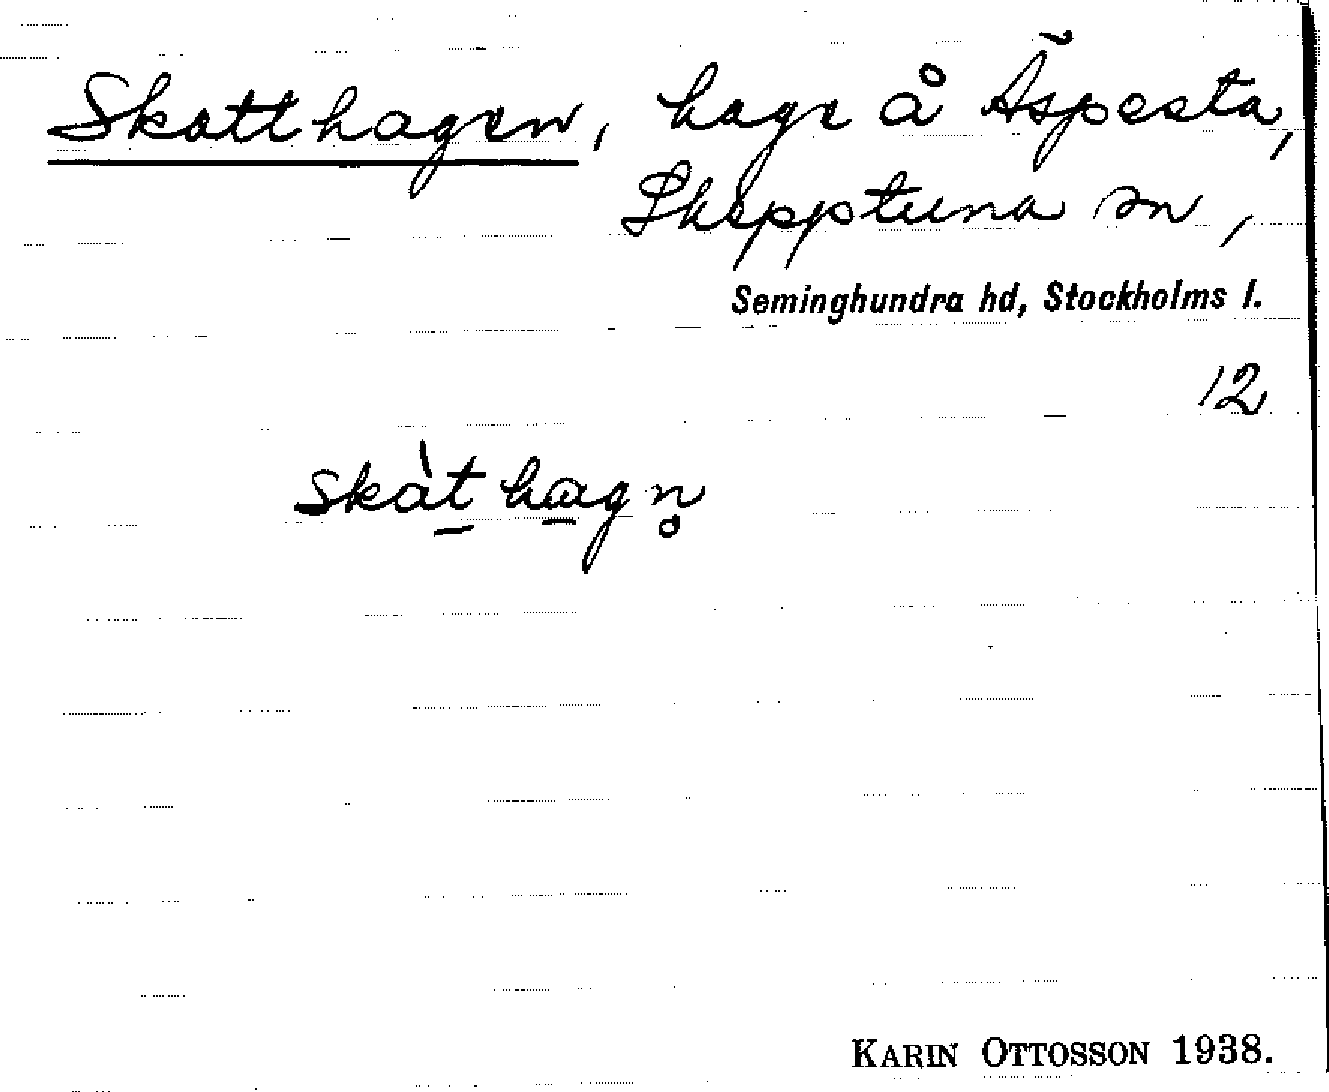 Skatthagen, hage å Äspesta,
Skepptuna sn,
Seminghundra hd, Stockholms l.
12
skàt hagn̥
KARIN OTTOSSON 1938.